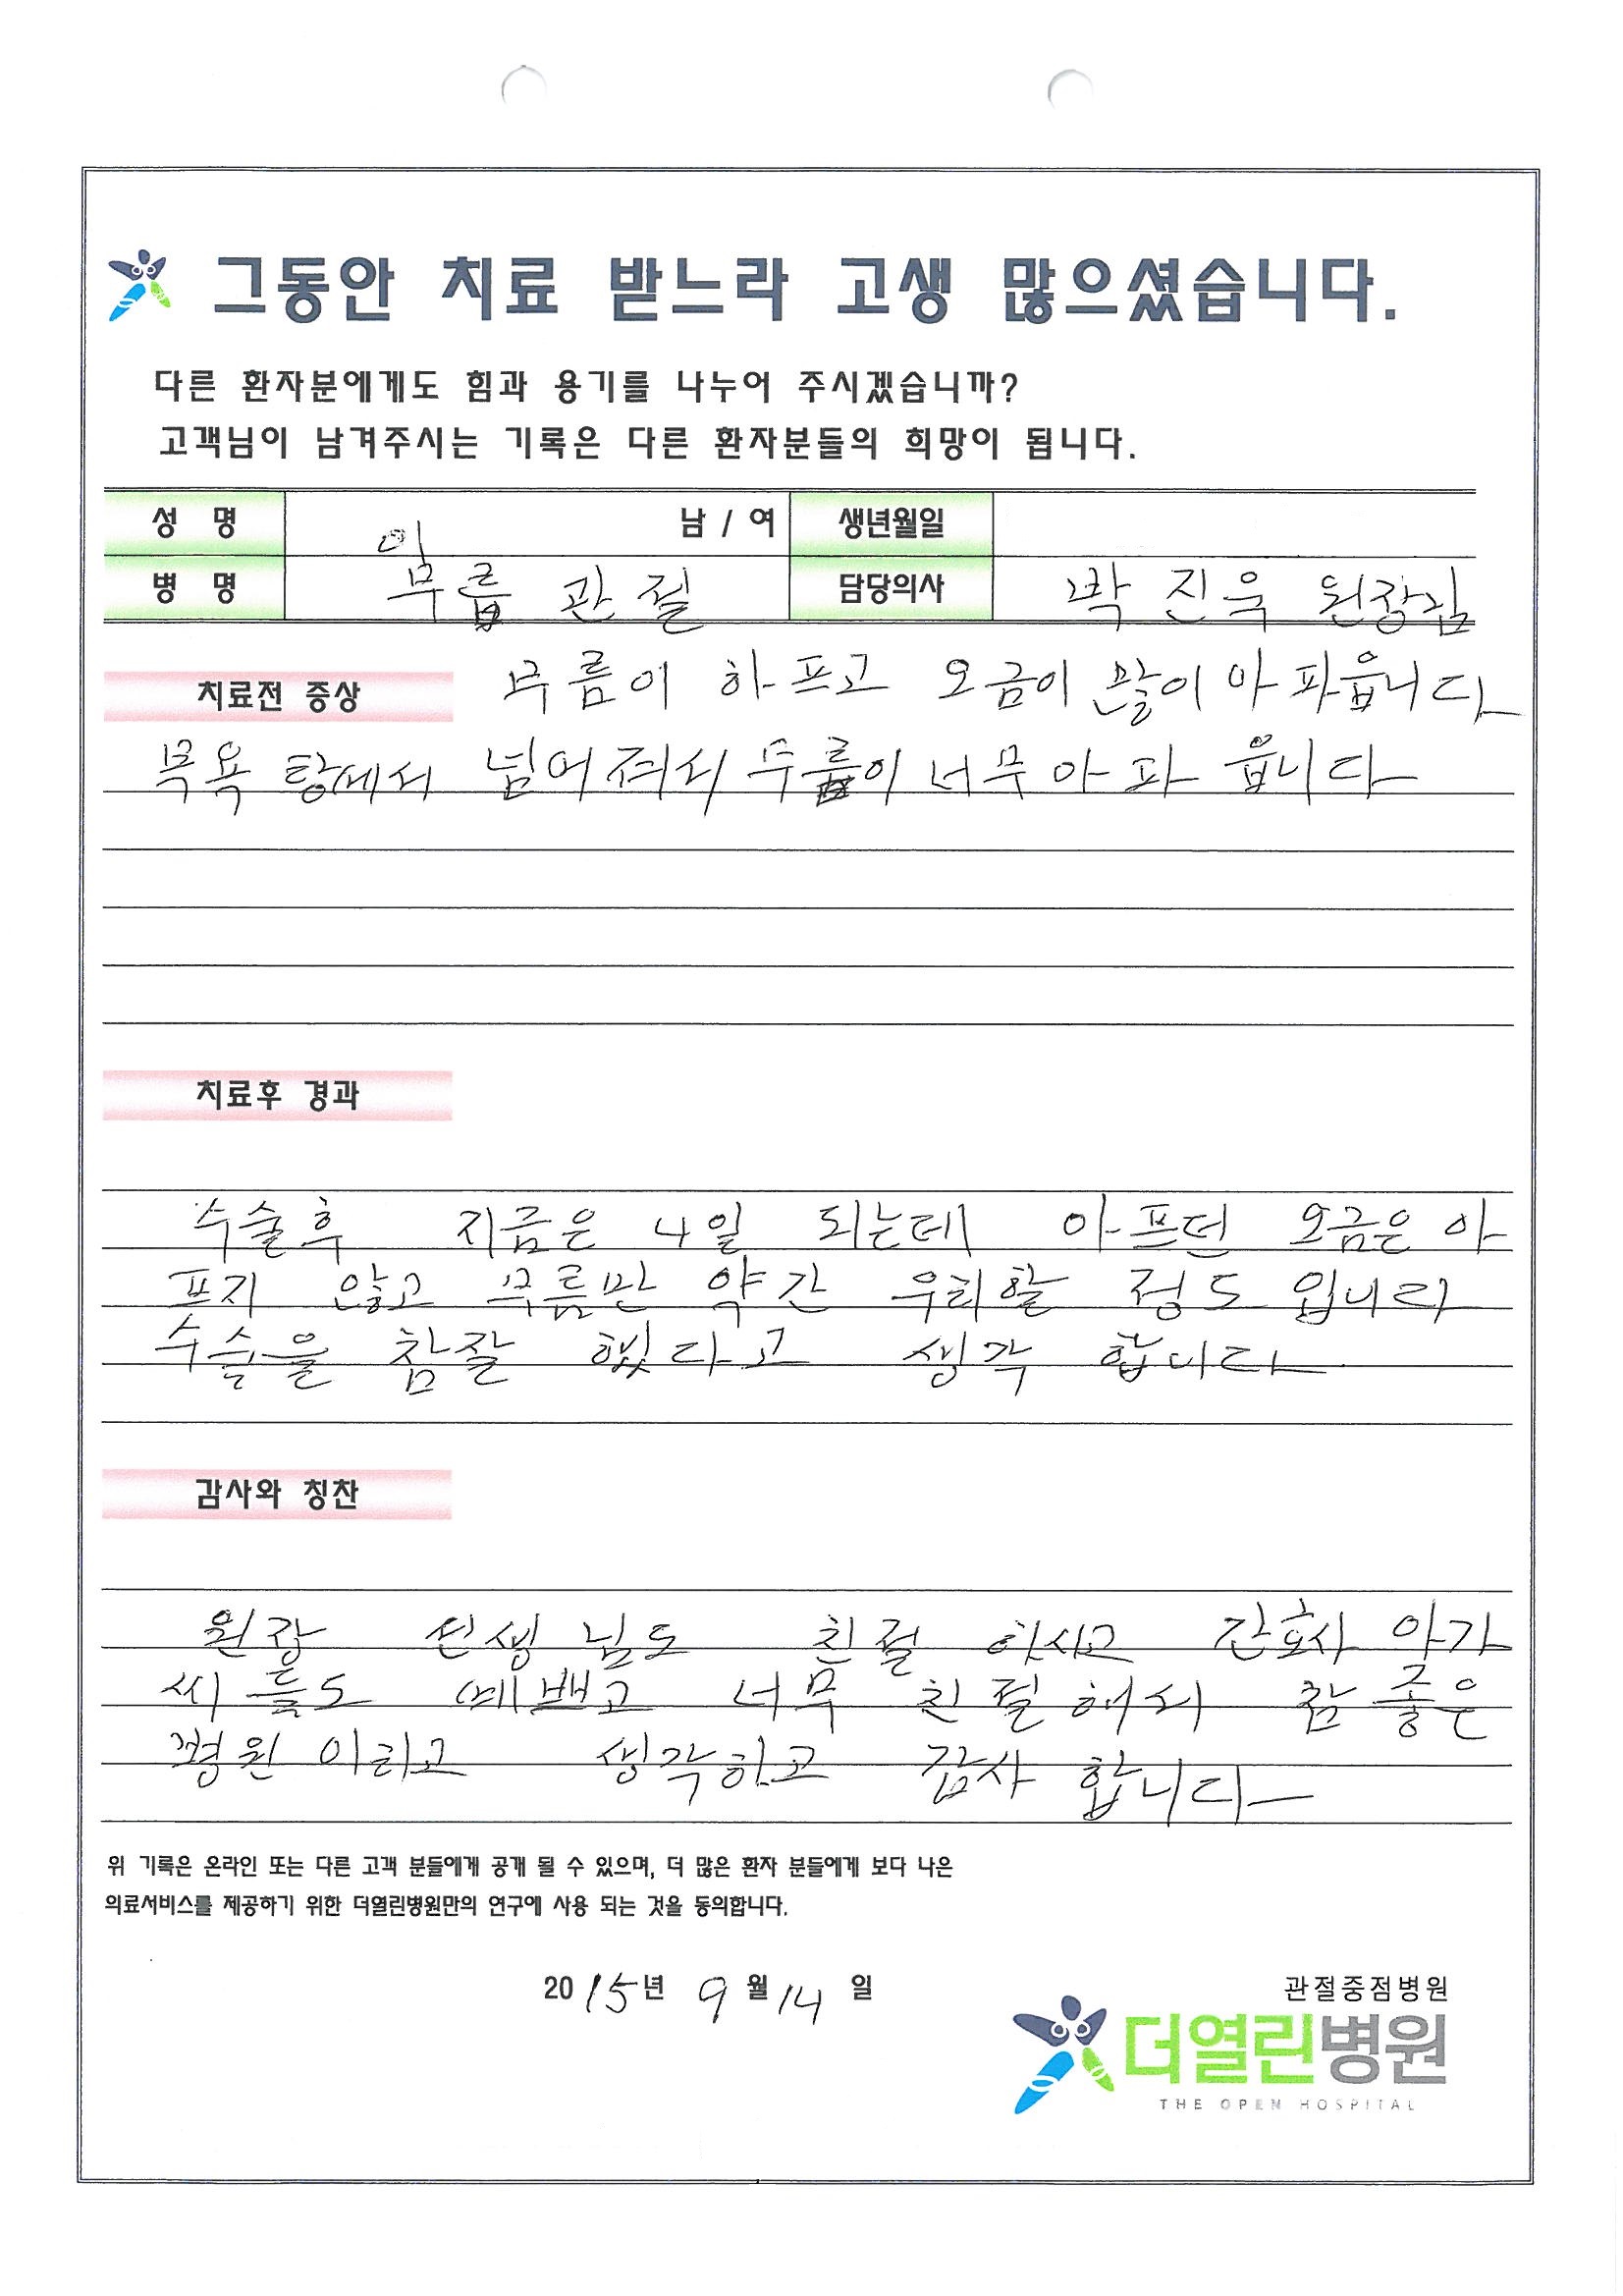 그동안 치료 받느라 고생 많으셨습니다.
다른 환자분에게도 힘과 용기를 나누어 주시겠습니까?
고객님이 남겨주시는 기록은 다른 환자분들의 희망이 됩니다.
성 명 남 / 여 생년월일
병 명 무릎 관절 담당의사 박 진욱 원장님
치료전 증상 무름이 하프고 오금이 많이 아파읍니다
목욕 탕에서 넘어져서 무릎이 너무 아파 읍니다
치료후 경과
수술후 지금은 4일 되는데 아프던 오금은 아
프지 않고 무름만 약간 우리할 정도 입니다
수술을 참잘 했다고 생각 합니다
감사와 칭찬
원장 선생 님도 친절 하시고 간호사 아가
씨 들도 예쁘고 너무 친절해서 참 좋은
병원 이라고 생각하고 감사 합니다
위 기록은 온라인 또는 다른 고객 분들에게 공개 될 수 있으며, 더 많은 환자 분들에게 보다 나은
의료서비스를 제공하기 위한 더열린병원만의 연구에 사용 되는 것을 동의합니다.
2015년 9월 14 일
관절중점병원
더열린병원
THE OPEN HOSPITAL